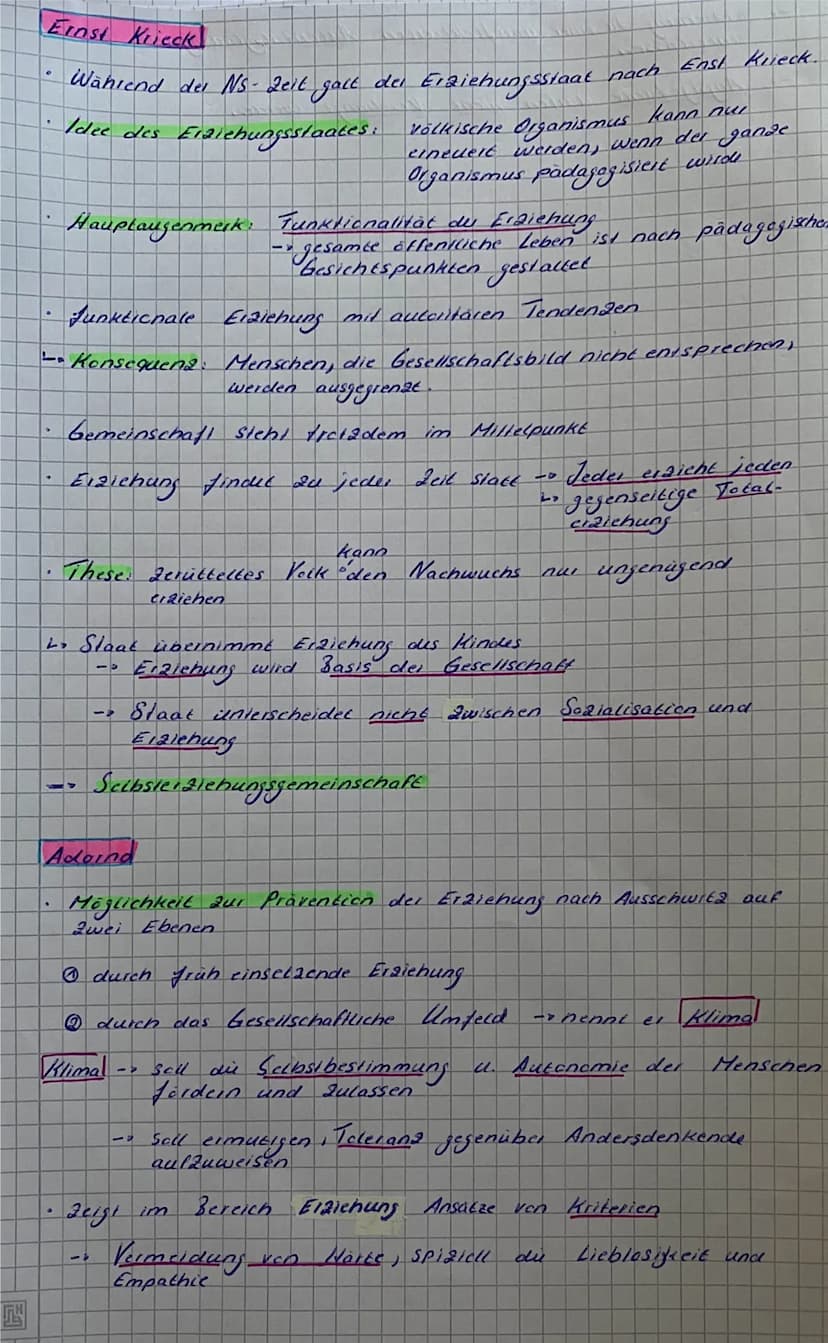 Ernst Krieck
· Während der NS-Zeit galt der Erziehungsstaat nach Enst Krieck.
· Idee des Erziehungsstaates: völkische Organismus kann nur
erneuert werden, wenn der ganze
Organismus pädagogisiert wird
· Hauptaugenmerk: Funktionalität der Erziehung
-> gesamte öffentliche Leben ist nach pädagogischen
Gesichtspunkten gestaltet
· funktionale Erziehung mit autoritären Tendenzen
↳ Konsequenz: Menschen, die Gesellschaftsbild nicht entsprechen,
werden ausgegrenzt.
· Gemeinschaft steht trotzdem im Mittelpunkt
· Erziehung findet zu jeder Zeit statt -> Jeder erzieht jeden
↳ gegenseitige Total-
erziehung
kann
· These: zerütteltes Volk den Nachwuchs nur ungenügend
erziehen
↳ Staat übernimmt Erziehung des Kindes
-> Erziehung wird Basis der Gesellschaft
-> Staat unterscheidet nicht zwischen Sozialisation und
Erziehung
-> Selbsterziehungsgemeinschaft
Adornd
· Möglichkeit zur Prävention der Erziehung nach Ausschwitz auf
zwei Ebenen
① durch früh einsetzende Erziehung
② durch das Gesellschaftliche Umfeld -> nennt er Klima
Klima -> soll die Selbstbestimmung u. Autonomie der Menschen
fördern und zulassen
-> soll ermutigen, Toleranz gegenüber Andersdenkende
aufzuweisen
· zeigt im Bereich Erziehung Ansätze von Kriterien
-> Vermeidung von Härte, spiziell die Lieblosigkeit und
Empathie